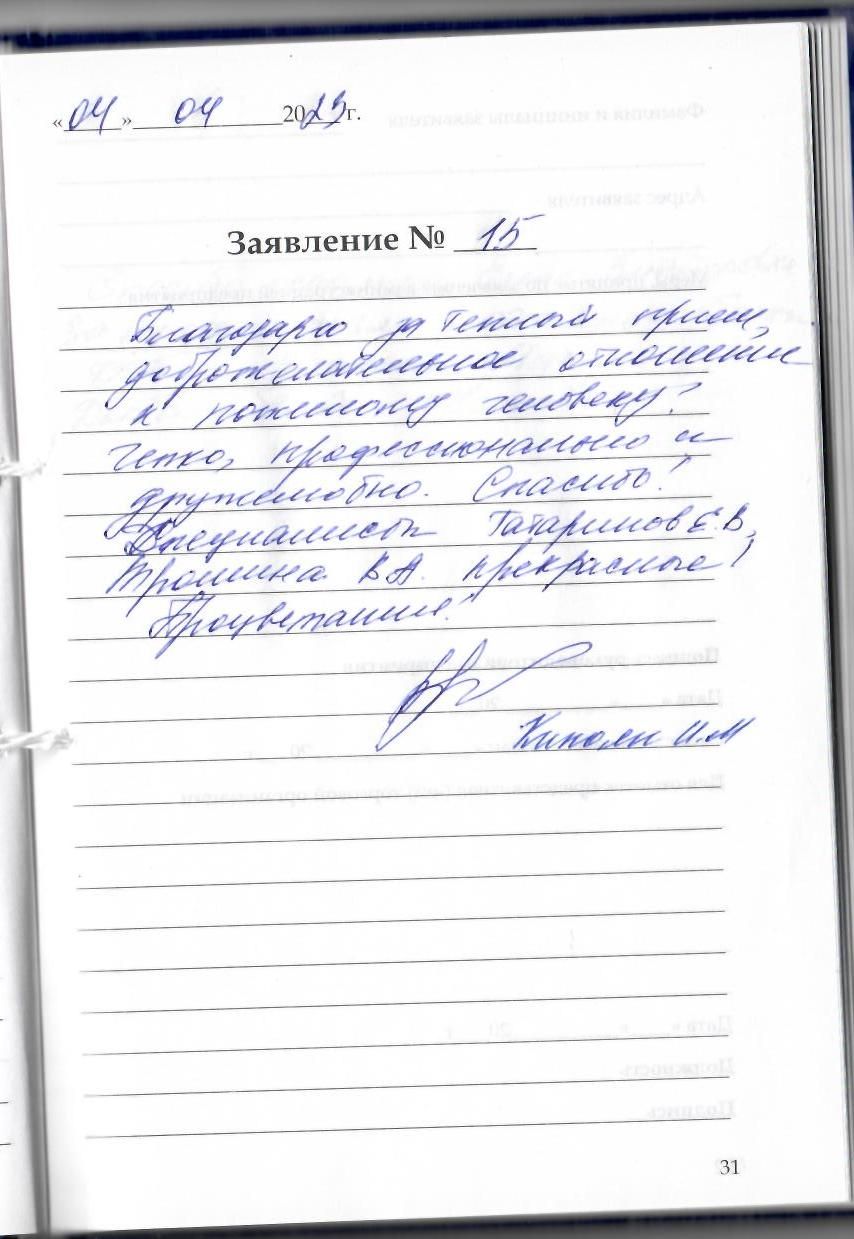 «04» 04 2023г.
Заявление № 15
Благодарю за теплый прием,
доброжелательное отношение
к пожилому человеку!
Четко, профессионально и
дружелюбно. Спасибо!
Специалисты Татаринов Е.В,
Трошина В.А. прекрасные!
Процветания!
И.М
31